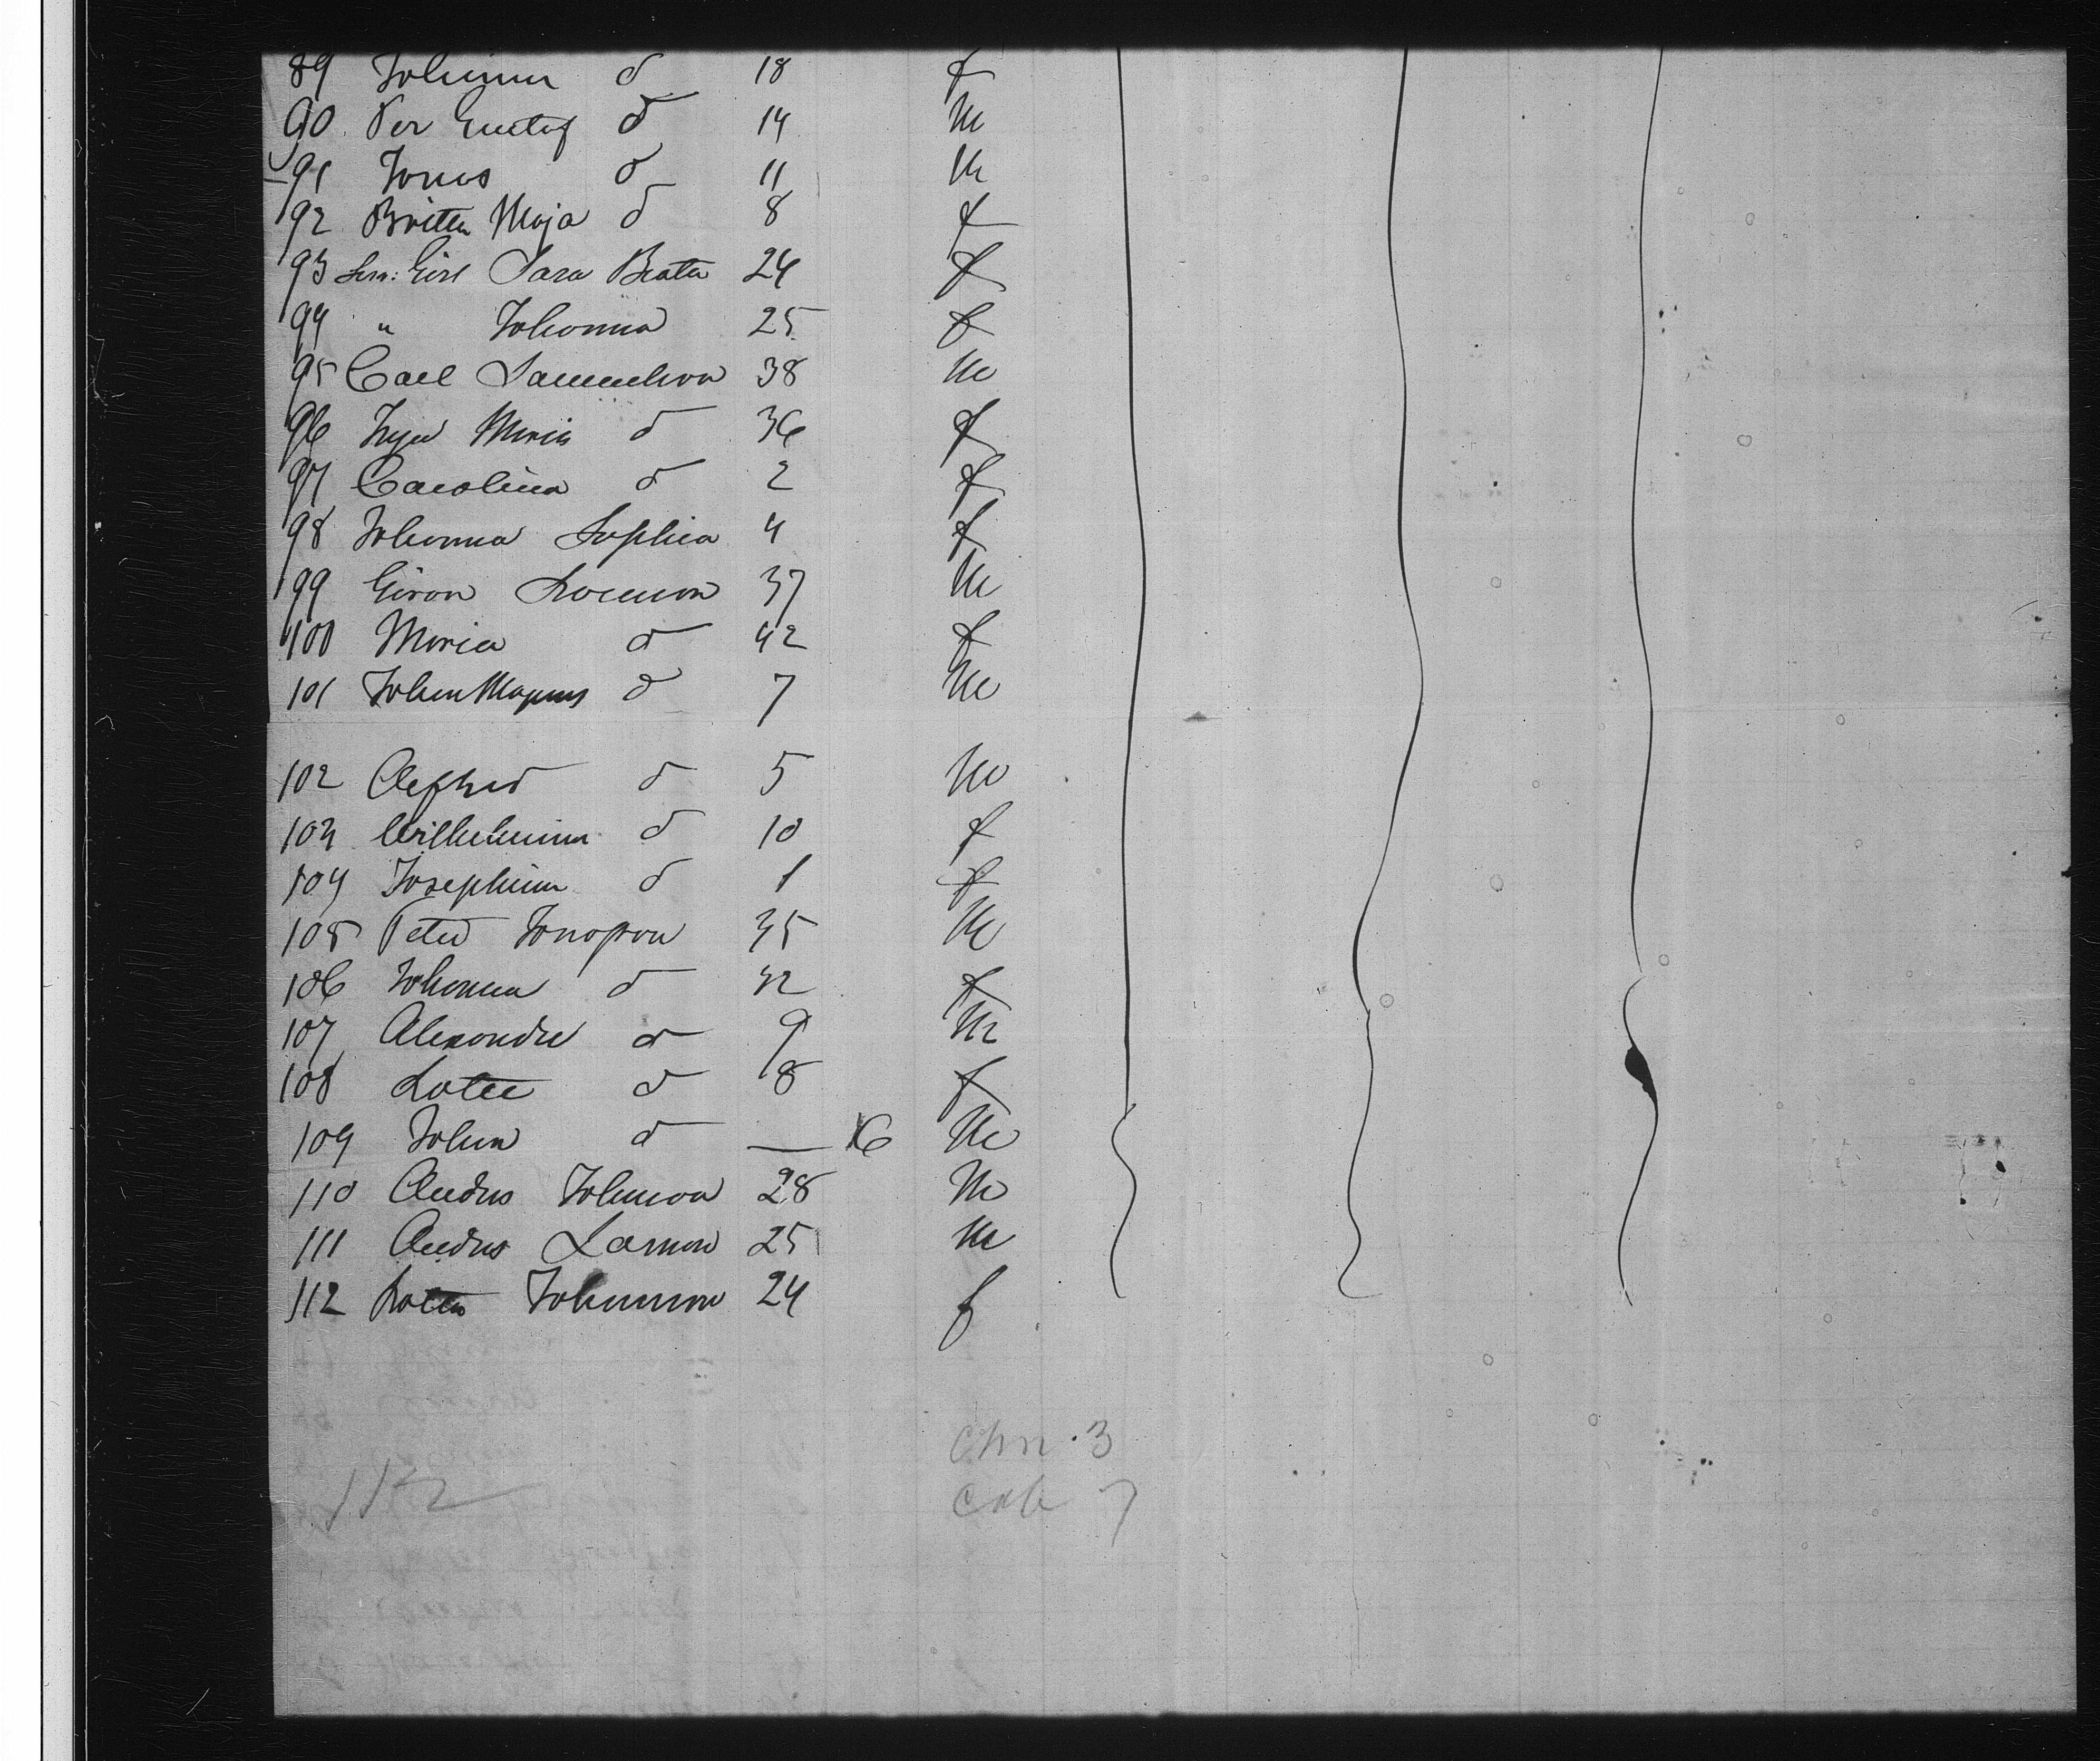 89 Johanna d 18 f
90 Per Gustaf d 14 m
91 Jonas d 11 m
92 Britta Maja d 8 f
93 Ser: Girl Sara Beata 24 f
94 " Johanna 25 f
95 Carl Samuelson 38 m
96 Inga Maria d 36 f
97 Carolina d 2 f
98 Johanna Sophia 4 f
99 37 m
100 Maria d 42 f
101 Johan Magnus d 7 m
102 Alfred d 5 m
103 Wilhelmina d 10 f
104 Josephina d 1 f
105 Peter Jonasson 35 m
106 Johanna d 32 f
107 Alexander d 9 m
108 Lotte d 8 f
109 Johan d — 6 m
110 Andrs Johnson 28 m
111 Andrs Larsson 25 m
112 Lotta Johansson 24 f
Chn. 3
112 Cab 7